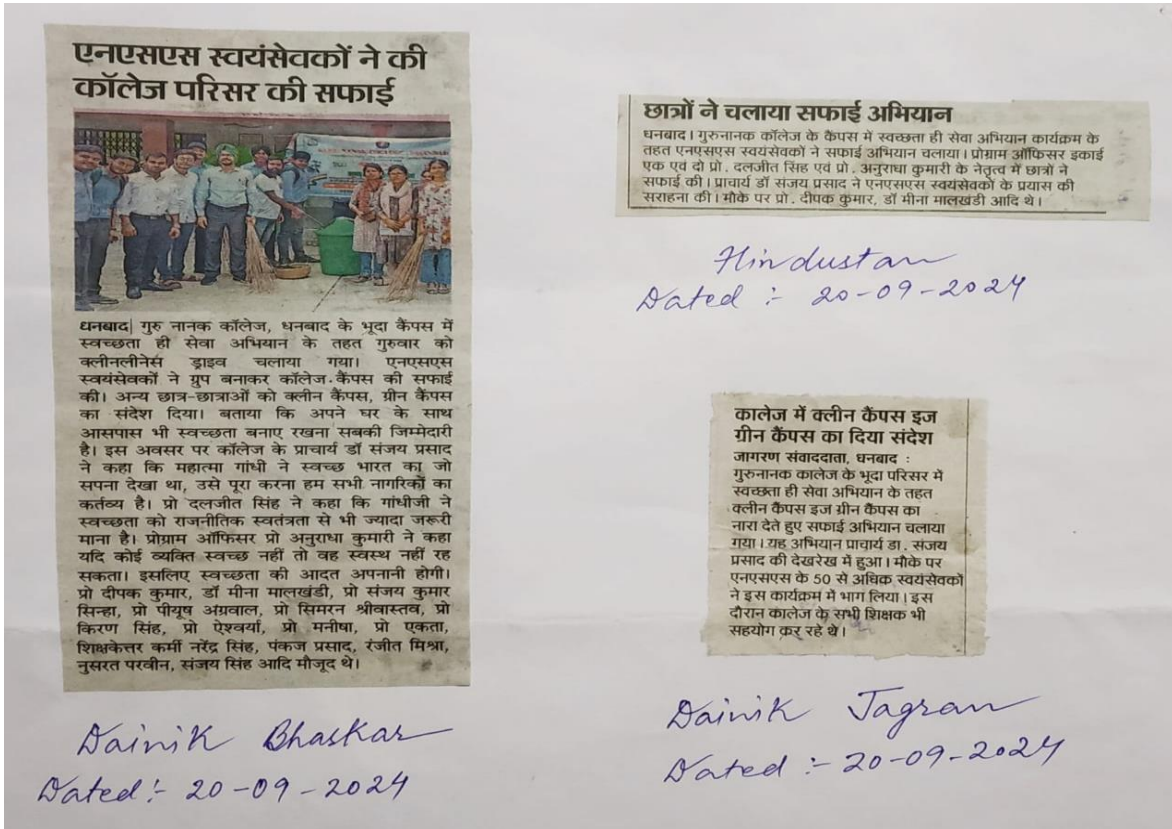 एनएसएस स्वयंसेवकों ने की
कॉलेज परिसर की सफाई
धनबाद| गुरु नानक कॉलेज, धनबाद के भूदा कैंपस में
स्वच्छता ही सेवा अभियान के तहत गुरुवार को
क्लीनलीनेस ड्राइव चलाया गया। एनएसएस
स्वयंसेवकों ने ग्रुप बनाकर कॉलेज कैंपस की सफाई
की। अन्य छात्र-छात्राओं को क्लीन कैंपस, ग्रीन कैंपस
का संदेश दिया। बताया कि अपने घर के साथ
आसपास भी स्वच्छता बनाए रखना सबकी जिम्मेदारी
है। इस अवसर पर कॉलेज के प्राचार्य डॉ संजय प्रसाद
ने कहा कि महात्मा गांधी ने स्वच्छ भारत का जो
सपना देखा था, उसे पूरा करना हम सभी नागरिकों का
कर्तव्य है। प्रो दलजीत सिंह ने कहा कि गांधीजी ने
स्वच्छता को राजनीतिक स्वतंत्रता से भी ज्यादा जरूरी
माना है। प्रोग्राम ऑफिसर प्रो अनुराधा कुमारी ने कहा
यदि कोई व्यक्ति स्वच्छ नहीं तो वह स्वस्थ नहीं रह
सकता। इसलिए स्वच्छता की आदत अपनानी होगी।
प्रो दीपक कुमार, डॉ मीना मालखंडी, प्रो संजय कुमार
सिन्हा, प्रो पीयूष अग्रवाल, प्रो सिमरन श्रीवास्तव, प्रो
किरण सिंह, प्रो ऐश्वर्या, प्रो मनीषा, प्रो एकता,
शिक्षकेत्तर कर्मी नरेंद्र सिंह, पंकज प्रसाद, रंजीत मिश्रा,
नुसरत परवीन, संजय सिंह आदि मौजूद थे।
Dainik Bhaskar
Dated :- 20-09-2024
छात्रों ने चलाया सफाई अभियान
धनबाद। गुरुनानक कॉलेज के कैंपस में स्वच्छता ही सेवा अभियान कार्यक्रम के
तहत एनएसएस स्वयंसेवकों ने सफाई अभियान चलाया। प्रोग्राम ऑफिसर इकाई
एक एवं दो प्रो. दलजीत सिंह एवं प्रो. अनुराधा कुमारी के नेतृत्व में छात्रों ने
सफाई की। प्राचार्य डॉ संजय प्रसाद ने एनएसएस स्वयंसेवकों के प्रयास की
सराहना की। मौके पर प्रो. दीपक कुमार, डॉ मीना मालखंडी आदि थे।
Hindustan
Dated :- 20-09-2024
कालेज में क्लीन कैंपस इज
ग्रीन कैंपस का दिया संदेश
जागरण संवाददाता, धनबाद :
गुरुनानक कालेज के भूदा परिसर में
स्वच्छता ही सेवा अभियान के तहत
क्लीन कैंपस इज ग्रीन कैंपस का
नारा देते हुए सफाई अभियान चलाया
गया। यह अभियान प्राचार्य डा. संजय
प्रसाद की देखरेख में हुआ। मौके पर
एनएसएस के 50 से अधिक स्वयंसेवकों
ने इस कार्यक्रम में भाग लिया। इस
दौरान कालेज के सभी शिक्षक भी
सहयोग कर रहे थे।
Dainik Jagran
Dated :- 20-09-2024